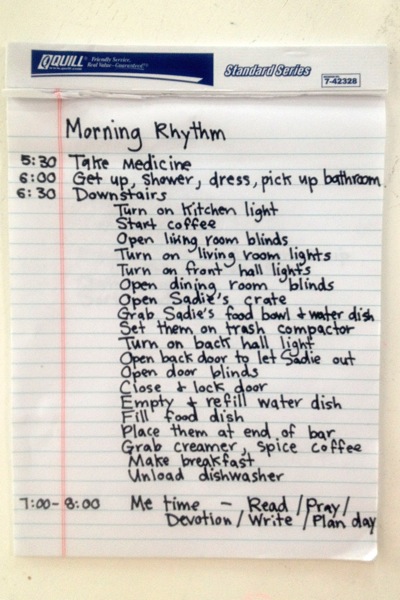 QUILL Friendly Service,
Real Value—Guaranteed!
Standard Series
7-42328
Morning Rhythm
5:30 Take Medicine
6:00 Get up, shower, dress, pick up bathroom
6:30 Downstairs
Turn on Kitchen light
Start coffee
Open living room blinds
Turn on living room lights
Turn on front hall lights
Open dining room blinds
Open Sadie's crate
Grab Sadie's food bowl + water dish
Set them on trash compactor
Turn on back hall light
Open back door to let Sadie out
Open door blinds
Close + lock door
Empty + refill water dish
Fill food dish
Place them at end of bar
Grab creamer, spice coffee
Make breakfast
Unload dishwasher
7:00-8:00 Me time - Read / Pray /
Devotion / Write / Plan day